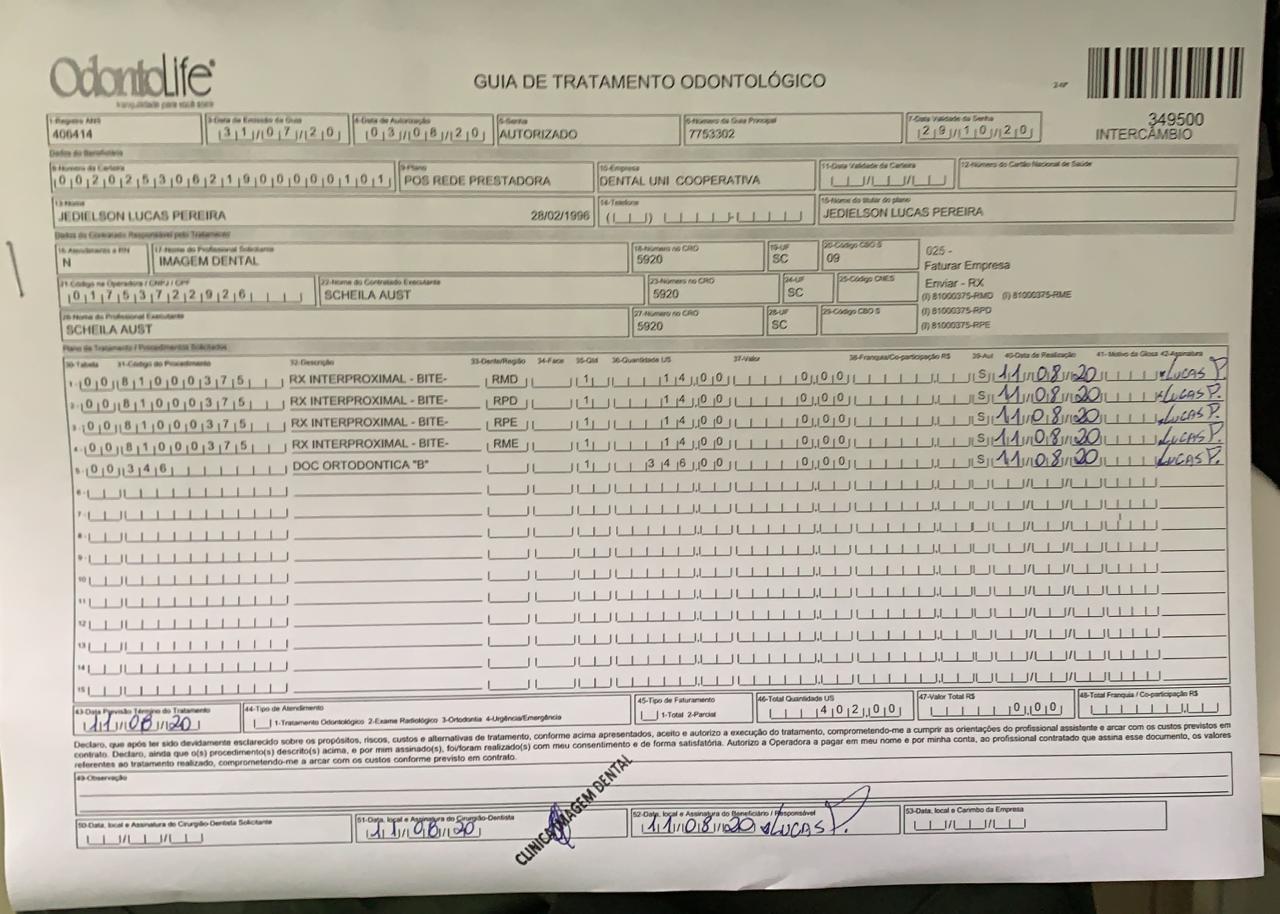 OdontoLife®
tranquilidade para você sorrir
GUIA DE TRATAMENTO ODONTOLÓGICO
349500
INTERCÂMBIO
1-Registro ANS 3-Data de Emissão da Guia 4-Data de Autorização 5-Senha 6-Número da Guia Principal 7-Data Validade da Senha
406414 31/07/20 03/08/20 AUTORIZADO 7753302 29/10/20
Dados do Beneficiário
8-Número da Carteira 9-Plano 10-Empresa 11-Data Validade da Carteira 12-Número do Cartão Nacional de Saúde
00202530621900000101 POS REDE PRESTADORA DENTAL UNI COOPERATIVA
13-Nome 14-Telefone 15-Nome do titular do plano
JEDIELSON LUCAS PEREIRA 28/02/1996 JEDIELSON LUCAS PEREIRA
Dados do Contratado Responsável pelo Tratamento
16-Atendimento a RN 17-Nome do Profissional Solicitante 18-Número no CRO 19-UF 20-Código CBO S
N IMAGEM DENTAL 5920 SC 09
025 -
Faturar Empresa
21-Código na Operadora / CNPJ / CPF 22-Nome do Contratado Executante 23-Número no CRO 24-UF 25-Código CNES
01753722926 SCHEILA AUST 5920 SC
Enviar - RX
(I) 81000375-RMD (I) 81000375-RME
(I) 81000375-RPD
(I) 81000375-RPE
26-Nome do Profissional Executante 27-Número no CRO 28-UF 29-Código CBO S
SCHEILA AUST 5920 SC
Plano de Tratamento / Procedimentos Solicitados
30-Tabela 31-Código do Procedimento 32-Descrição 33-Dente/Região 34-Face 35-Qtd 36-Quantidade US 37-Valor 38-Franquia/Co-participação R$ 39-Aut 40-Data de Realização 41-Motivo da Glosa 42-Assinatura
1- 00 81000375 RX INTERPROXIMAL - BITE- RMD 1 14,00 0,00 S 11/08/20 LUCAS P.
2- 00 81000375 RX INTERPROXIMAL - BITE- RPD 1 14,00 0,00 S 11/08/20 LUCAS P.
3- 00 81000375 RX INTERPROXIMAL - BITE- RPE 1 14,00 0,00 S 11/08/20 LUCAS P.
4- 00 81000375 RX INTERPROXIMAL - BITE- RME 1 14,00 0,00 S 11/08/20 LUCAS P.
5- 00 346 DOC ORTODONTICA "B" 1 346,00 0,00 S 11/08/20 LUCAS P.
6-
7-
8-
9-
10-
11-
12-
13-
14-
15-
43-Data Previsão Término do Tratamento 44-Tipo de Atendimento 45-Tipo de Faturamento 46-Total Quantidade US 47-Valor Total R$ 48-Total Franquia / Co-participação R$
11/08/20 1-Tratamento Odontológico 2-Exame Radiológico 3-Ortodontia 4-Urgência/Emergência 1-Total 2-Parcial 402,00 0,00
Declaro, que após ter sido devidamente esclarecido sobre os propósitos, riscos, custos e alternativas de tratamento, conforme acima apresentados, aceito e autorizo a execução do tratamento, comprometendo-me a cumprir as orientações do profissional assistente e arcar com os custos previstos em
contrato. Declaro, ainda que o(s) procedimento(s) descrito(s) acima, e por mim assinado(s), foi/foram realizado(s) com meu consentimento e de forma satisfatória. Autorizo a Operadora a pagar em meu nome e por minha conta, ao profissional contratado que assina esse documento, os valores
referentes ao tratamento realizado, comprometendo-me a arcar com os custos conforme previsto em contrato.
49-Observação
50-Data, local e Assinatura do Cirurgião-Dentista Solicitante 51-Data, local e Assinatura do Cirurgião-Dentista 52-Data, local e Assinatura do Beneficiário / Responsável 53-Data, local e Carimbo da Empresa
11/08/20 11/08/20 LUCAS P.
CLINICA IMAGEM DENTAL